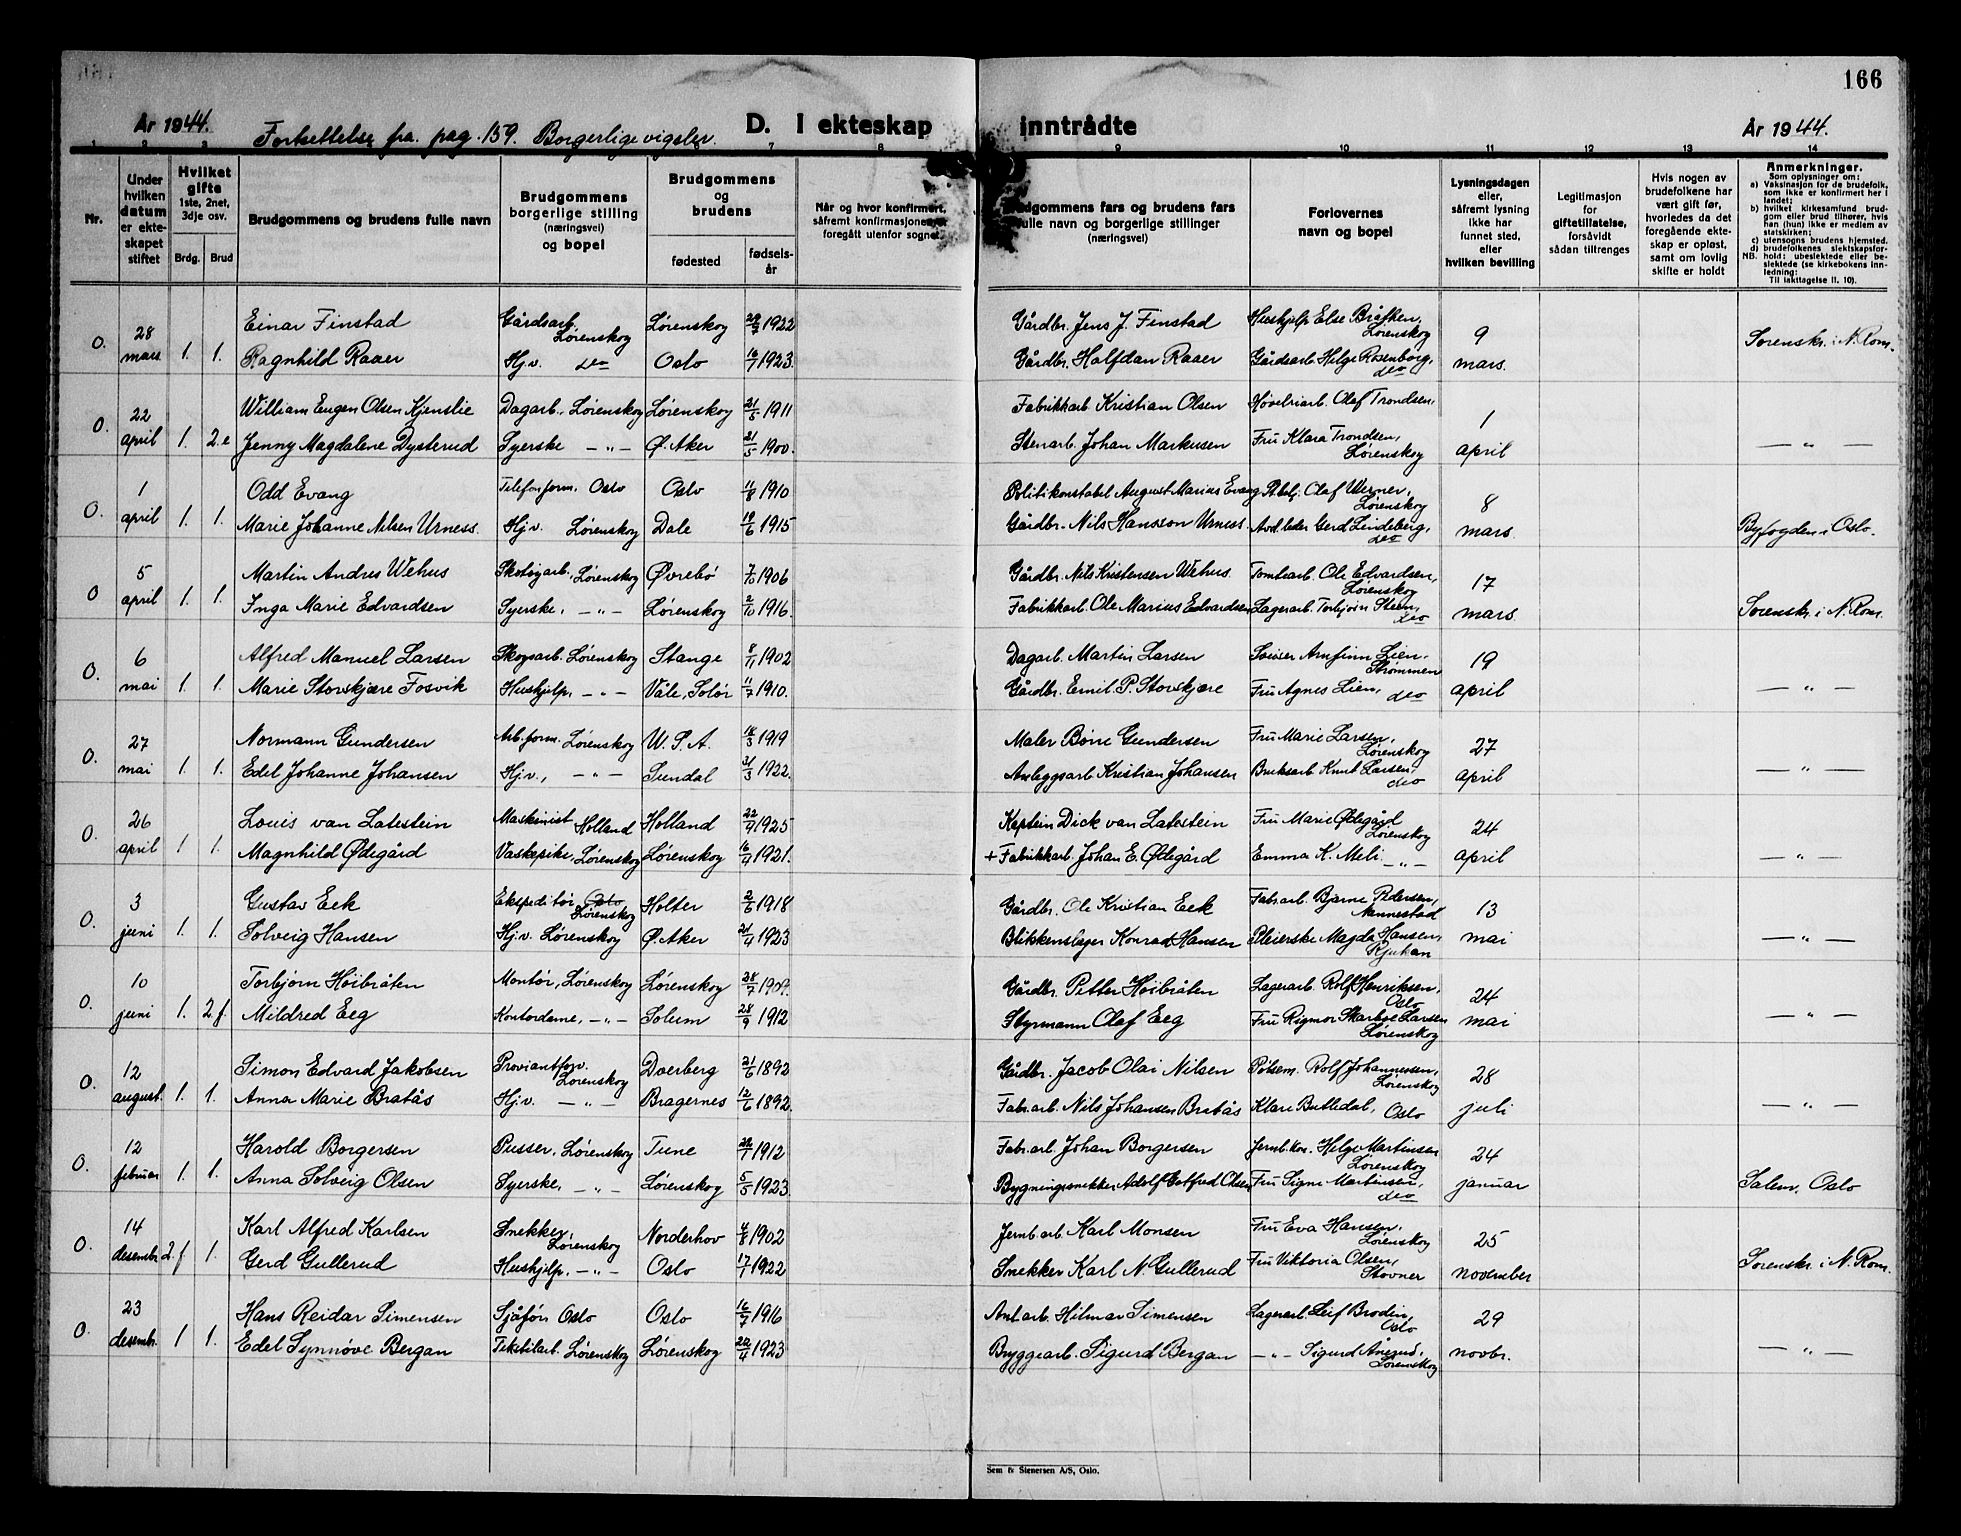 166
År 1944. Fortsettelse fra pag. 159. Borgerlige vigsler. D. I ekteskap inntrådte År 1944.
1 2 3 7 8 9 10 11 12 13 14
Nr.
Under hvilken datum er ekteskapet stiftet
Hvilket gifte 1ste, 2net, 3dje osv.
Brdg. Brud
Brudgommens og brudens fulle navn
Brudgommens borgerlige stilling (næringsvei) og bopel
Brudgommens og brudens
fødested
fødselsår
Når og hvor konfirmert, såfremt konfirmasjonen er foregått utenfor sognet.
dgommens fars og brudens fars fulle navn og borgerlige stillinger (næringsvei)
Forlovernes navn og bopel
Lysningsdagen eller, såfremt lysning ikke har funnet sted, eller hvilken bevilling
Legitimasjon for giftetillatelse, forsåvidt sådan tiltrenges
Hvis nogen av brudefolkene har vært gift før, hvorledes da det foregående ekteskap er opløst, samt om lovlig skifte er holdt
Anmerkninger.
Som oplysninger om:
a) Vaksinasjon for de brudefolk, som ikke er konfirmert her i landet;
b) hvilket kirkesamfund brudgom eller brud tilhører, hvis han (hun) ikke er medlem av statskirken;
c) utensogns brudens hjemsted.
d) brudefolkenes slektskapsforhold: ubeslektede eller beslektede (se kirkebokens innledning:
NB.
Til iakttagelse II. 10).
0. 28 mars 1. 1. Einar Finstad Gårdsarb. Lørenskog Lørenskog 1922 Gårdbr. Jens J. Finstad Hushjelp Else Bråthen, Lørenskog 9 mars. Sorenskr. i N. Rom.
Ragnhild Raaer Hjv. deo Oslo 16/7 1923. Gårdbr. Halfdan Raaer Gårdsarb. Helge Rosenborg, deo
0. 22 april 1. 2.e William Eugen Olsen Kjenslie Dagarb., Lørenskog Lørenskog 21/5 1911 Fabrikkarb. Kristian Olsen Høvleriarb. Olaf Trondsen, 1 april — " —
Jenny Magdalene Dysterud Syerske — " — Ø. Aker 21/5 1900. Stenarb. Johan Markusen Fru Klara Trondsen, Lørenskog
0. 1 april 1. 1. Odd Evang Telefonform. Oslo Oslo 11/8 1910 Politikonstabel August Marius Evang Olaf Werner, Lørenskog 8 mars. Byfogden i Oslo.
Marie Johanne Nilsen Urness. Hjv. Lørenskog Dale 19/6 1915 Gårdbr. Nils Hansson Urness. Avd. leder Gerd Lindeberg, deo
0 5 april 1. 1. Martin Andrus Wehus Skotøyarb., Lørenskog Øvrebø 7/10 1906 Gårdbr. Nils Kristensen Wehus. Tomtearb. Ole Edvardsen, Lørenskog 17 mars. Sorenskr. i N. Rom.
Inga Marie Edvardsen Syerske, — " — Lørenskog 2/10 1916. Fabrikkarb. Ole Marius Edvardsen Lagerarb. Torbjørn Steen, deo
0. 6 mai 1. 1. Alfred Manuel Larsen Skogsarb. Lørenskog Stange 8/11 1902 Dagarb. Martin Larsen Arnfinn Lien, Strømmen 19 april — " —
Marie Storskjære Fosvik Hushjelp, — " — Våle, Solør 11/7 1910. Gårdbr. Emil P. Storskjære Fru Agnes Lien, deo
0. 27 mai 1. 1. Normann Gundersen Arb. form. Lørenskog U.S.A. 1919 Maler Børre Gundersen Fru Marie Larsen, Lørenskog 27 april — " —
Edel Johanne Johansen Hjv., — " — Sundal 31/3 1922. Anleggsarb. Kristian Johansen Bruksarb. Knut Larsen, deo
0. 26 april 1 1. Louis van Latestein Maskinist Holland Holland 22/9 1925 Kaptein Dick van Latestein Fru Marie Ødegård Lørenskog 24 april — " —
Magnhild Ødegård Vaskepike, Lørenskog Lørenskog 1921. + Fabrikkarb. Johan E. Ødegård Emma K. Meli — " —
0. 3 juni 1. 1. Gustav Eek Ekspeditør Oslo Lørenskog Holter 2/6 1918 Gårdbr. Ole Kristian Eek Fabr.arb. Bjarne Pedersen, Nannestad 13 mai — " —
Solveig Hansen Hjv. Lørenskog Ø. Aker 21/4 1923 Blikkenslager Konrad Hansen Pleierske Magda Hansen, Rjukan
0. 10 juni 1. 2.f. Torbjørn Høibråten Montør, Lørenskog Lørenskog 28/7 1909. Gårdbr. Petter Høibråten Lagerarb. Rolf Henriksen, Oslo 24 mai — " —
Mildred Eeg Kontordame, — " — Solum 28/9 1912 Styrmann Olaf Eeg Fru Rigmor Skarbøe Larsen Lørenskog
0. 12 august. 1. 1. Simon Edvard Jakobsen Proviantforv. Lørenskog Dverberg 21/6 1892 Gårdbr. Jacob Olai Nilsen Pølsem. Rolf Johannessen, Lørenskog 28 juli — " —
Anna Marie Bratås Hjv. — " — Bragernes 12/6 1892. Fabr.arb. Nils Johansen Bratås Klare Butledal, Oslo
0. 12 februar 1. 1. Harold Borgersen Pusser, Lørenskog Tune 1912 Fabr.arb. Johan Borgersen Helge Martinsen Lørenskog 24 januar Salem, Oslo
Anna Solveig Olsen Syerske, — " — Lørenskog 5/5 1923. Bygningssnekker Adolf Gotfred Olsen Fru Signe Martinsen, deo
0. 14 desembr 2.f. 1. Karl Alfred Karlsen Snekker Lørenskog Norderhov 4/8 1902 Jernb.arb. Karl Monsen Fru Eva Hansen, Lørenskog 25 november Sorenskr. i N. Rom.
Gerd Gullerud Hushjelp. — " — Oslo 17/7 1922 Snekker Karl N. Gullerud Fru Viktoria Olsen, Stovner
0. 23 desembr. 1 1. Hans Reidar Simensen Sjåfør Oslo Oslo 16/7 1916 Anl.arb. Hilmar Simensen Lagerarb. Leif Brodin, Oslo 29 novbr. — " —
Edel Synnøve Bergan Tekstilarb. Lørenskog Lørenskog 22/4 1923 Bryggearb. Sigurd Bergan — " — Sigurd Ånerud, Lørenskog
Sem & Stenersen A/S, Oslo.